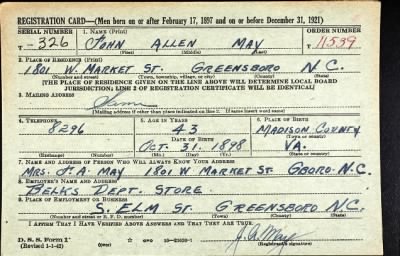 REGISTRATION CARD—(Men born on or after February 17, 1897 and on or before December 31, 1921)
SERIAL NUMBER 1. NAME (Print) ORDER NUMBER
T-326 JOHN ALLEN MAY 11539
(First) (Middle) (Last)
2. PLACE OF RESIDENCE (Print)
1801 W. MARKET ST. GREENSBORO N.C.
(Number and street) (Town, township, village, or city) (County) (State)
[THE PLACE OF RESIDENCE GIVEN ON THE LINE ABOVE WILL DETERMINE LOCAL BOARD
JURISDICTION; LINE 2 OF REGISTRATION CERTIFICATE WILL BE IDENTICAL]
3. MAILING ADDRESS
Same
[Mailing address if other than place indicated on line 2. If same insert word same]
4. TELEPHONE 5. AGE IN YEARS 6. PLACE OF BIRTH
8296 43 MADISON COUNTY
DATE OF BIRTH (Town or county)
OCT. 31. 1898 VA.
(Exchange) (Number) (Mo.) (Day) (Yr.) (State or country)
7. NAME AND ADDRESS OF PERSON WHO WILL ALWAYS KNOW YOUR ADDRESS
MRS. J.A. MAY 1801 W MARKET ST. GBORO. N.C.
8. EMPLOYER'S NAME AND ADDRESS
BELKS DEPT. STORE
9. PLACE OF EMPLOYMENT OR BUSINESS
S. ELM ST. GREENSBORO N.C.
(Number and street or R. F. D. number) (Town) (County) (State)
I AFFIRM THAT I HAVE VERIFIED ABOVE ANSWERS AND THAT THEY ARE TRUE.
D. S. S. Form 1
(Revised 1-1-42) GPO 16—21630-1 J. A. May
(Registrant's signature)